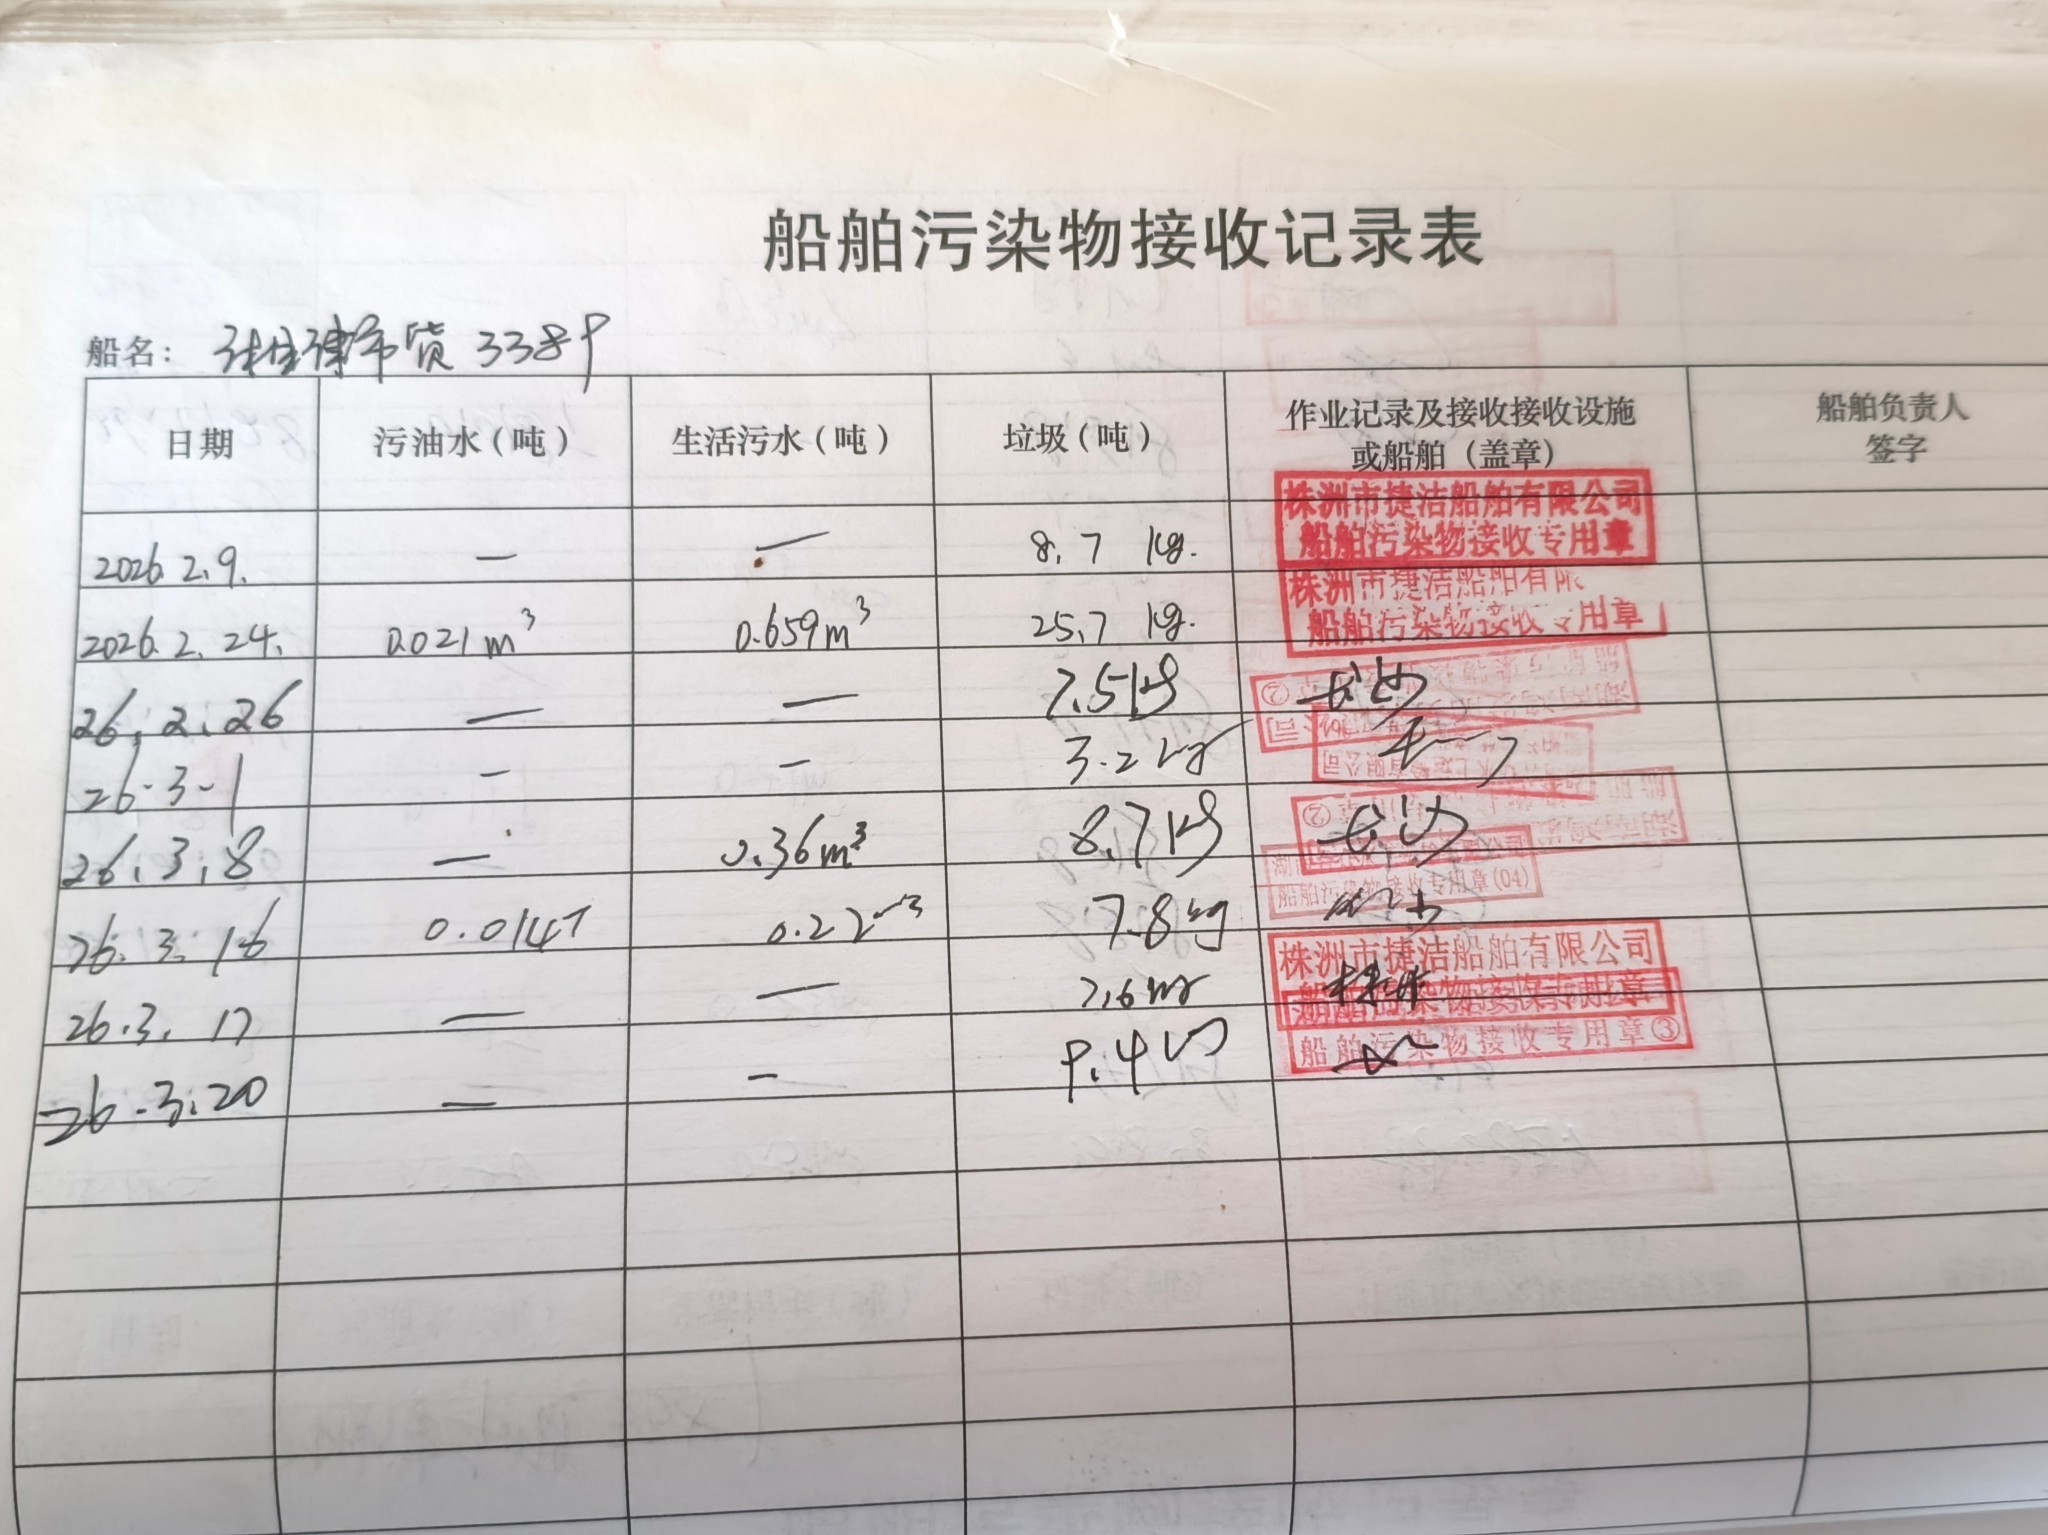 船舶污染物接收记录表
船名： 货 3389
日期 污油水（吨） 生活污水（吨） 垃圾（吨） 作业记录及接收接收设施或船舶（盖章） 船舶负责人签字
2026.2.9. — — 8.7 kg. 株洲市捷洁船舶有限公司 船舶污染物接收专用章
2026.2.24. 0.021m³ 0.659m³ 25.7 kg. 株洲市捷洁船舶有限 船舶污染物接收专用章
26.2.26 — — 7.5kg 长沙
26.3-1 — — 3.2kg
26.3.8 — 0.36m³ 8.7kg 长沙
26.3.16 0.0147 0.22m³ 7.8kg 船舶污染物接收专用章(04)
26.3.17 — — 7.6kg 株洲 株洲市捷洁船舶有限公司
26.3.20 — — 9.4kg 船舶污染物接收专用章③